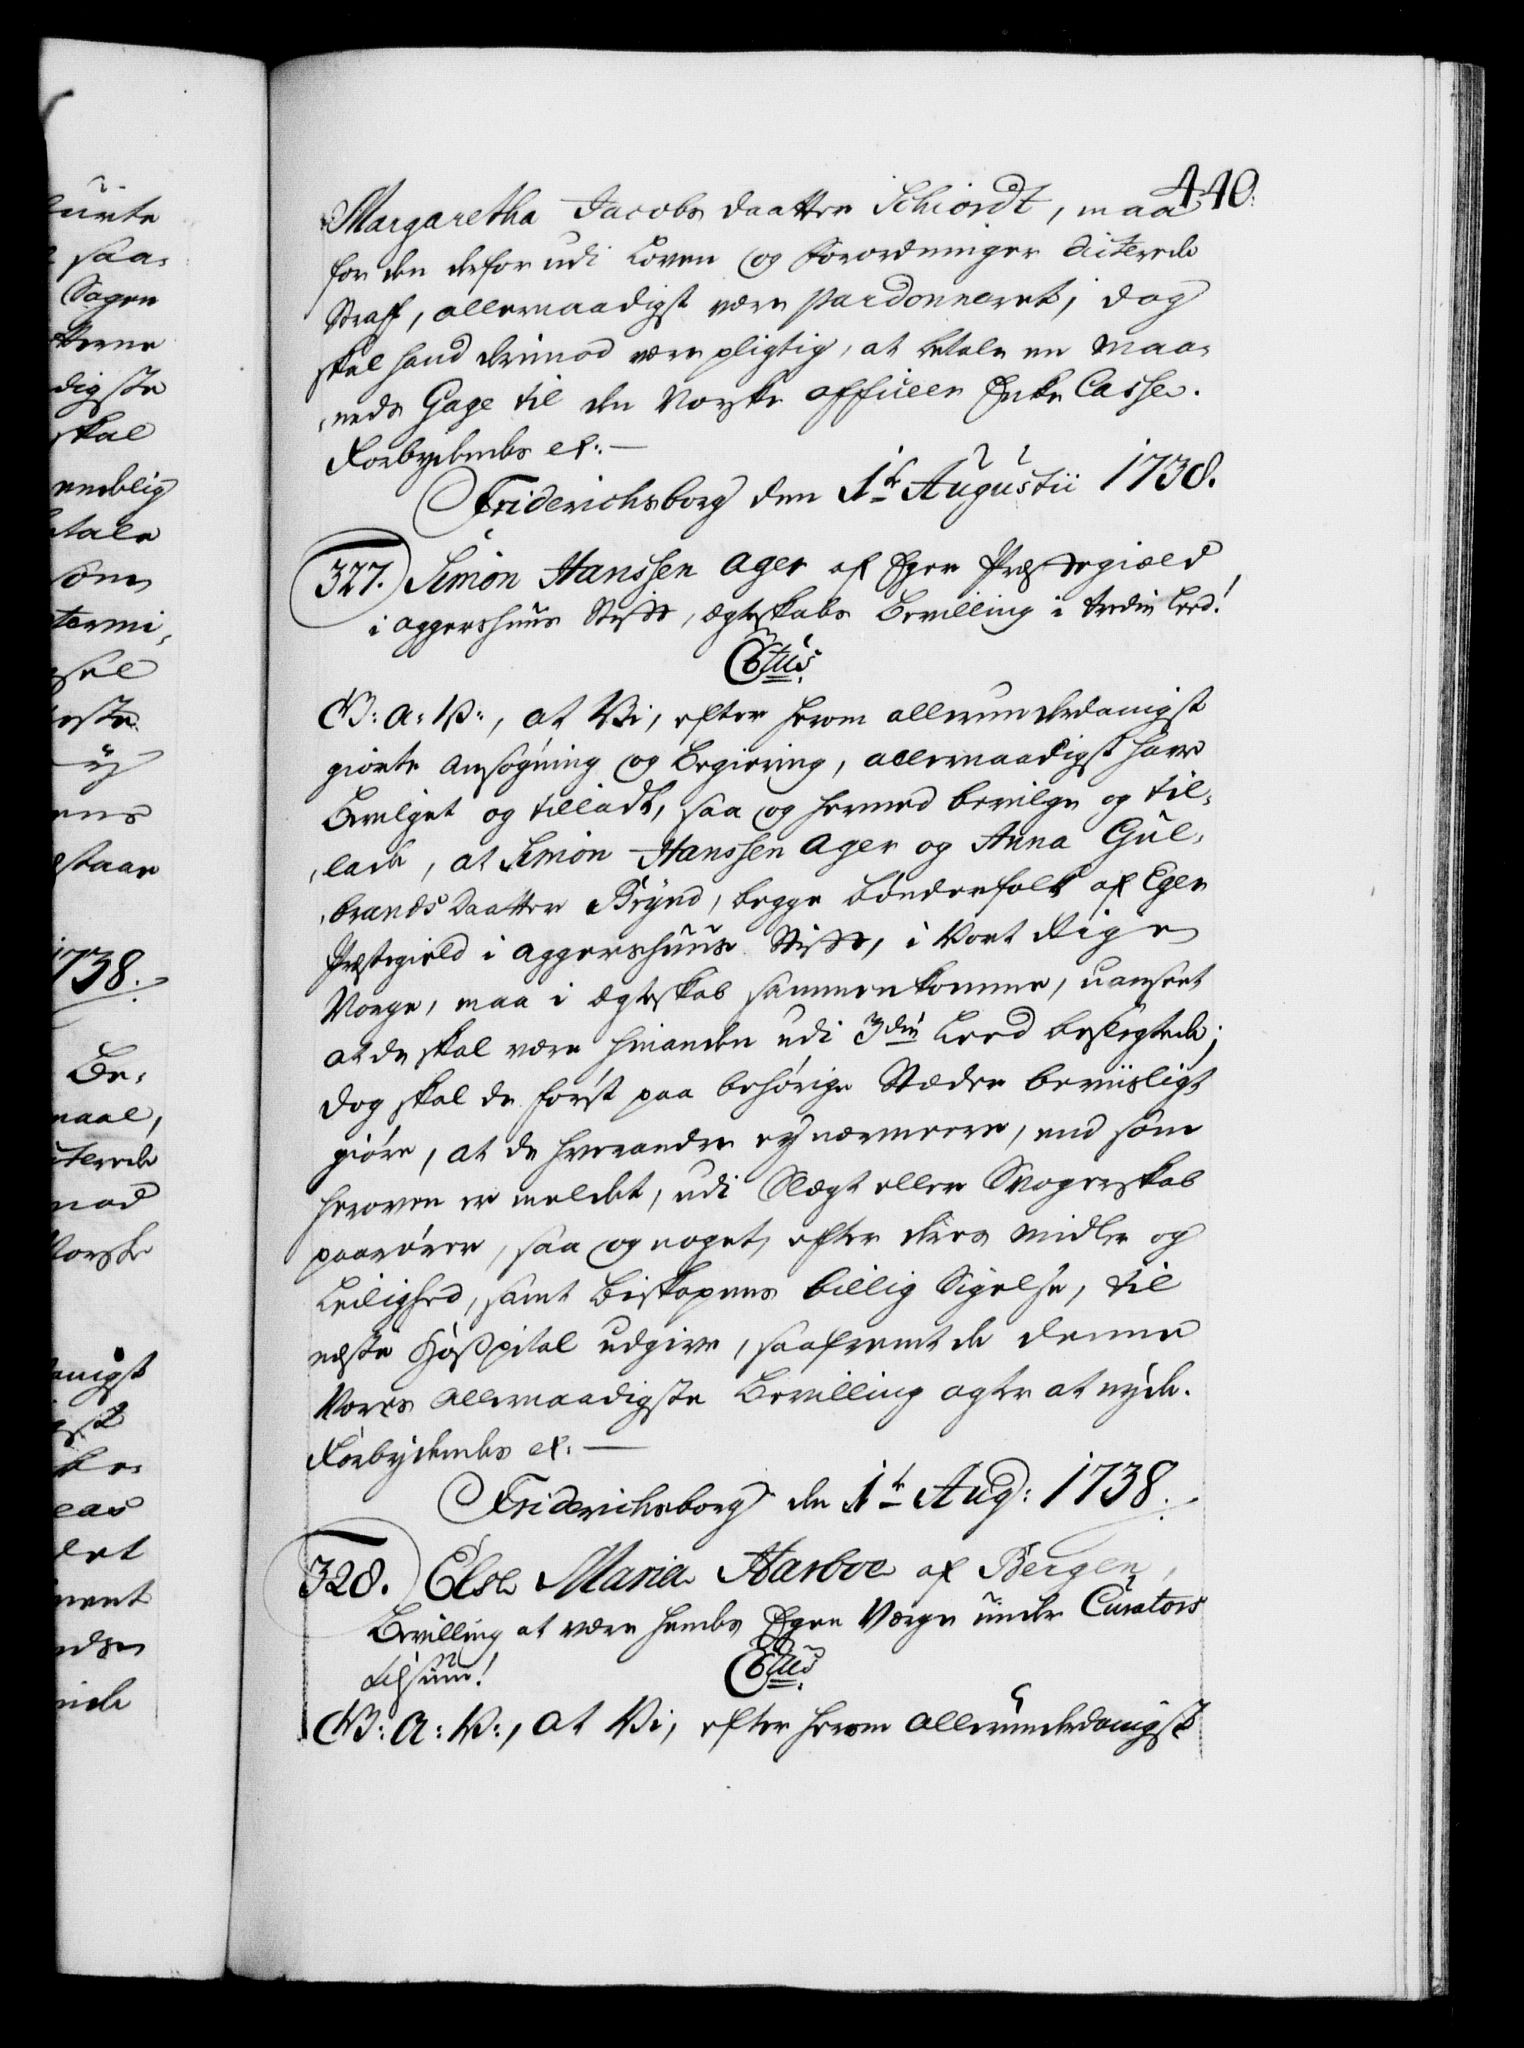 440.
Margaretha Jacobs daatter Schiördt, maa
for den derfor udi Loven og Forordninger dicterede
Straf, allernaadigst være pardonneret; dog
skal hand derimod være pligtig, at betale en Maa-
neds Gage til den Norske officeer Enke Casse.
Forbydendes etc:
Friderichsborg den 1te Augustii 1738.
327. Simon Hanssen Ager af Eger Præstegiæld
i Aggershuus Stift, Ægteskabs Bevilling i tredie Leed!
C6tus.
G: A: V:, at Vi, efter herom allerunderdanigst
giorte Ansøgning og Begiering, allernaadigst have
Bevilget og tilladt, saa og hermed bevilge og til-
lade, at Simon Hanssen Ager og Anna Gul-
brands daatter Brÿnd, begge bönderfolk af Eger
Præstegield i Aggershuus Stift, i Vort Rige
Norge, maa i Ægteskab sammenkomme, uanseet
at de skal være hinanden udi 3die Leed beslegtede;
dog skal de først paa behörige Stæder beviisligt
giöre, at de hverandre ey nærmere, end som
heroven er meldet, udi Slægt eller Svogerskab
paarörer, saa og noget, efter deres midler og
Leilighed, samt Biskopens billig Sigelse, til
næste Hospital udgive, saafremt de denne
Vores allernaadigste Bevilling agter at nyde.
Forbydendes etc.
Friderichsborg den 1te Aug: 1738.
328. Else Maria Harboe af Bergen,
Bevilling at være hendes Egen Værge under Curators
tilsiun!
C6tus.
G: A: V:, at Vi, efter herom allerunderdanigst